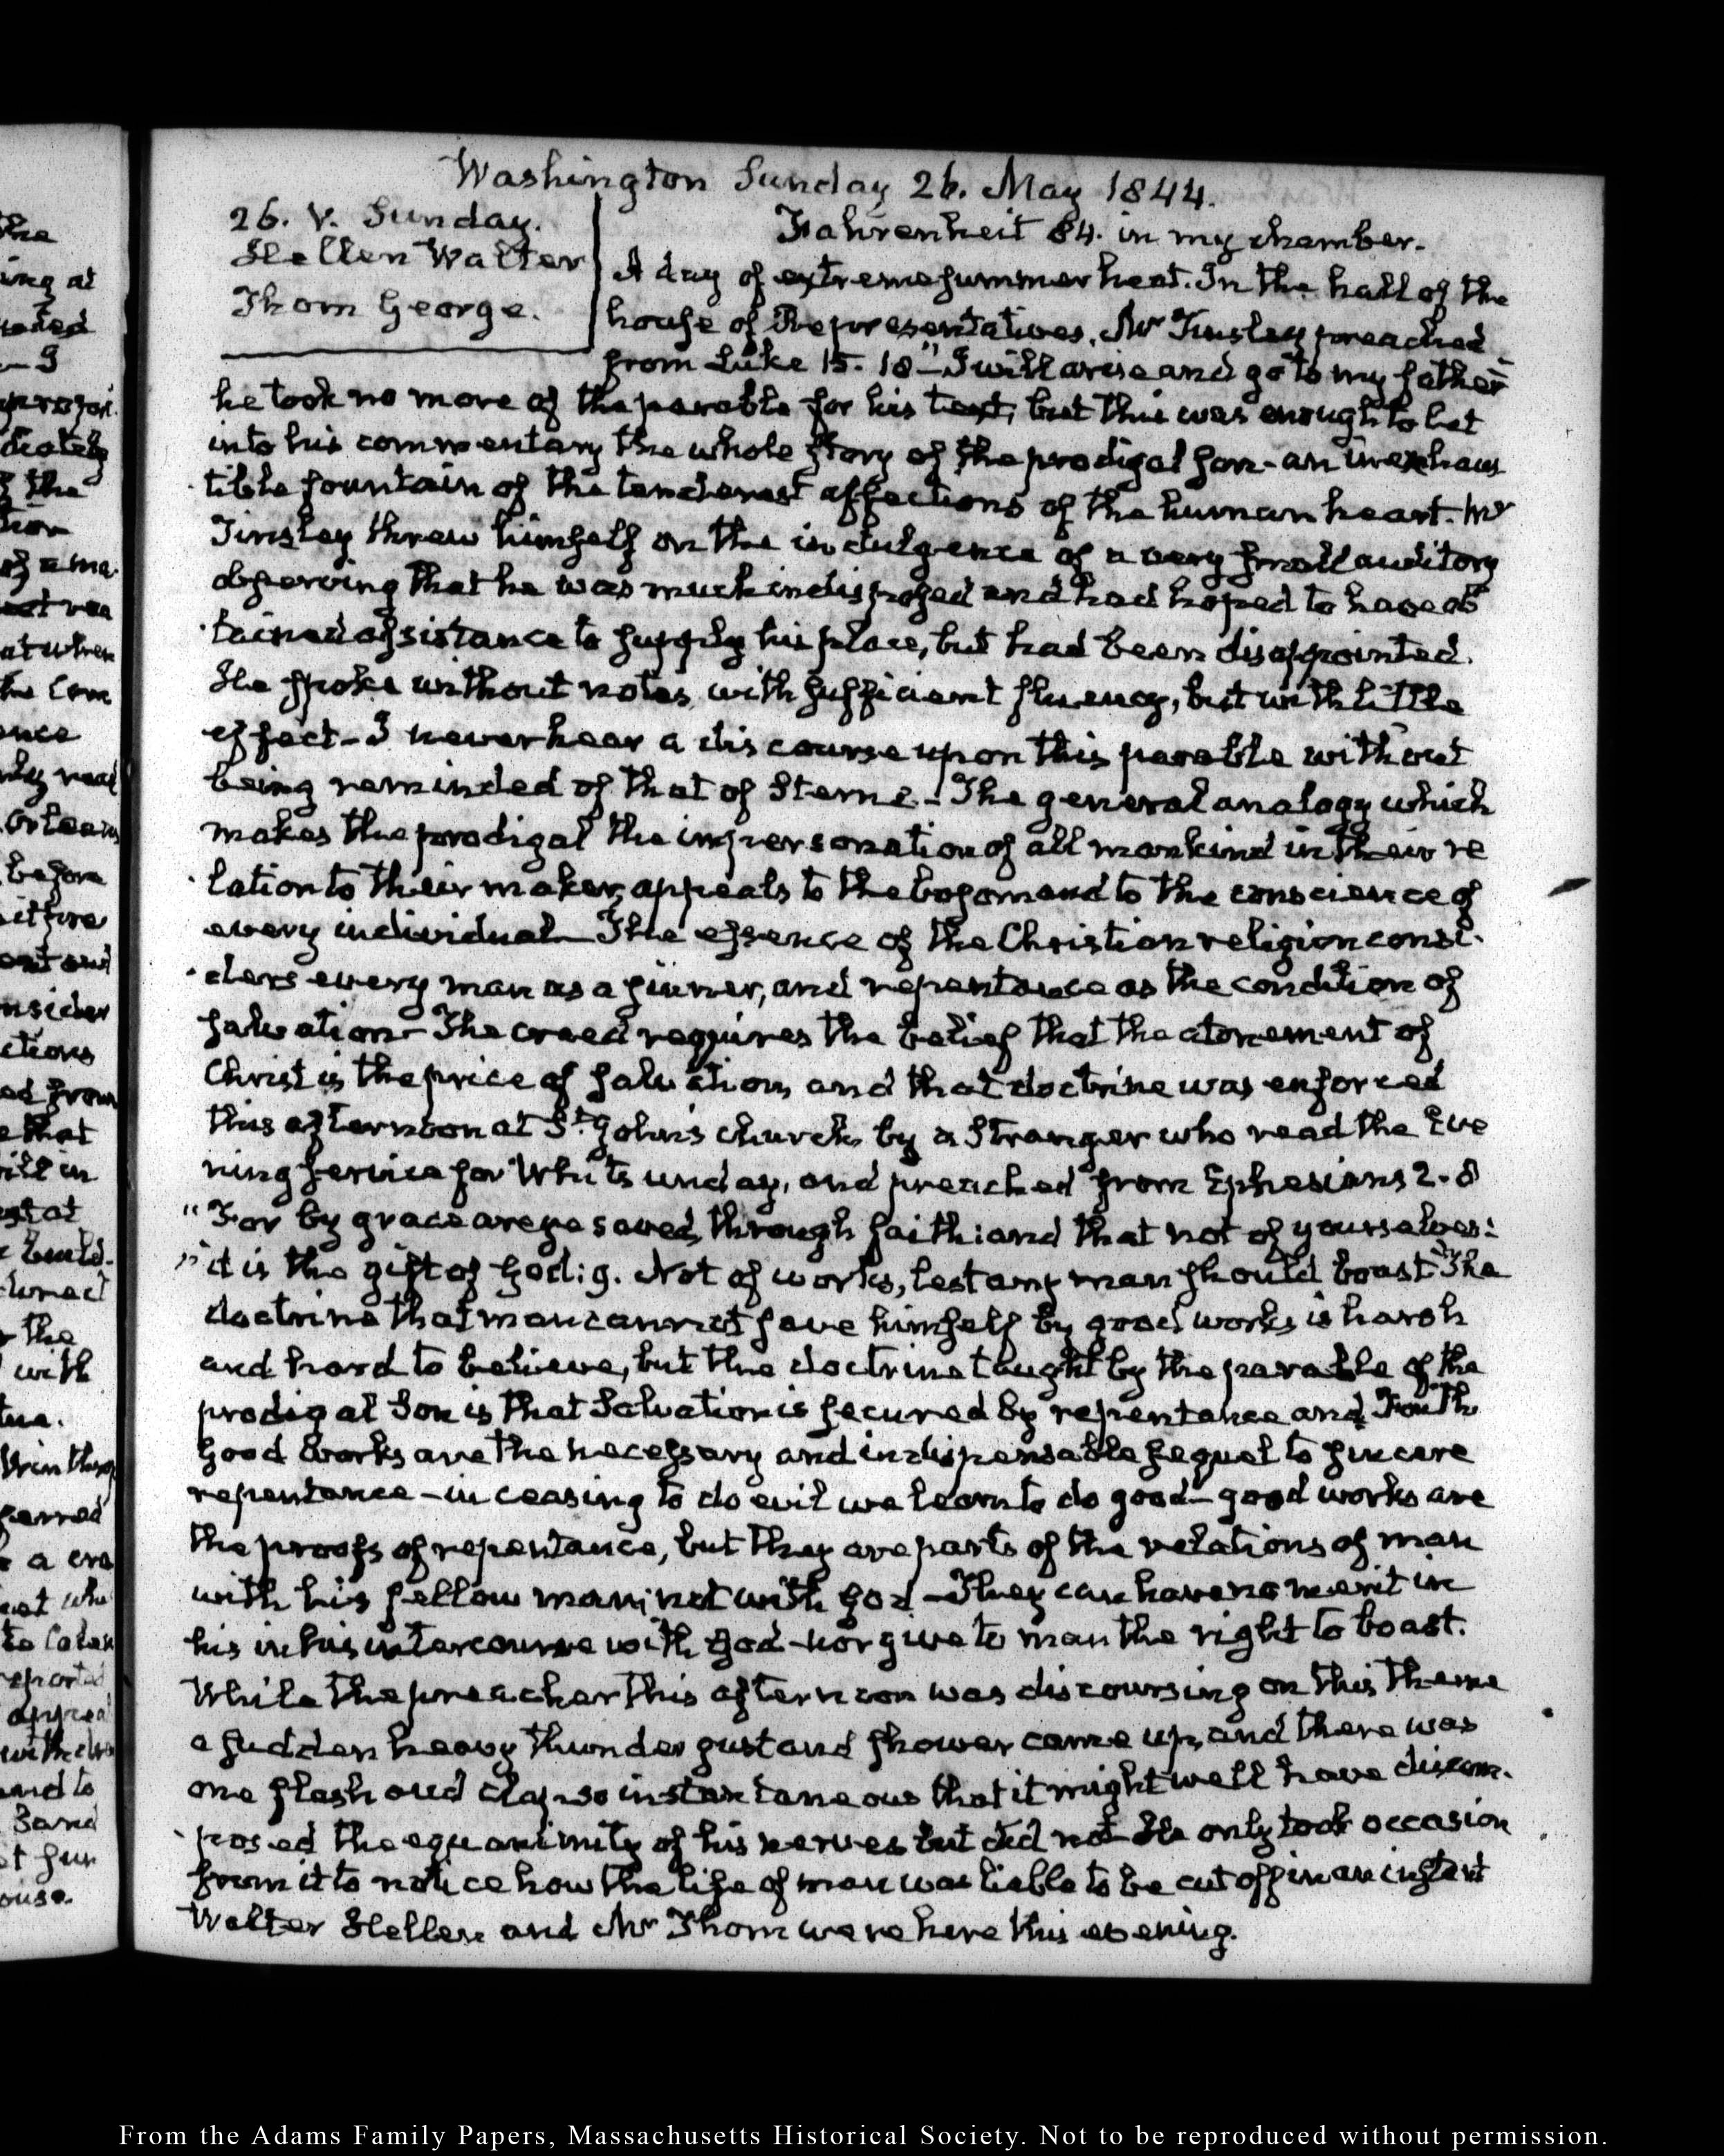 Washington Sunday 26. May 1844.
26. V. Sunday.
Hellen Walter
Thom George.
Fahrenheit 84. in my chamber.
A day of extreme summer heat. In the hall of the
house of Representatives, Mr Tinsley preached
from Luke 15. 18 "I will arise and go to my father"
he took no more of the parable for his text, but this was enough to let
into his commentary the whole story of the prodigal son - an inexhaus
tible fountain of the tenderest affections of the human heart. Mr
Tinsley threw himself on the indulgence of a very small auditory
observing that he was much indisposed and had hoped to have ob
tained assistance to supply his place, but had been disappointed.
He spoke without notes, with sufficient fluency, but with little
effect - I never hear a discourse upon this parable without
being reminded of that of Sterne - The general analogy which
makes the prodigal the impersonation of all mankind in their re
lation to their maker, appeals to the bosom and to the conscience of
every individual - The essence of the Christian religion consi-
ders every man as a sinner, and repentance as the condition of
salvation - The creed requires the belief that the atonement of
Christ is the price of salvation, and that doctrine was enforced
this afternoon at St John's church, by a Stranger who read the Eve
ning service for Whitsunday, and preached from Ephesians 2. 8
"For by grace are ye saved, through faith; and that not of yourselves:
"it is the gift of God: 9. Not of works, lest any man should boast" The
doctrine that man cannot save himself by good works is harsh
and hard to believe, but the doctrine taught by the parable of the
prodigal Son is that Salvation is secured by repentance and Faith
Good works are the necessary and indispensable sequel to sincere
repentance - in ceasing to do evil we learn to do good - good works are
the proofs of repentance, but they are parts of the relations of man
with his fellow man; not with God - They can have no merit in
his in his intercourse with God - nor give to man the right to boast.
While the preacher this afternoon was discoursing on this theme
a sudden heavy thunder gust and shower came up, and there was
one flash and clap so instantaneous that it might well have discom-
posed the equanimity of his nerves but did not - He only took occasion
from it to notice how the life of man was liable to be cut off in an instant
Walter Hellen and Mr Thom were here this evening.
From the Adams Family Papers, Massachusetts Historical Society. Not to be reproduced without permission.